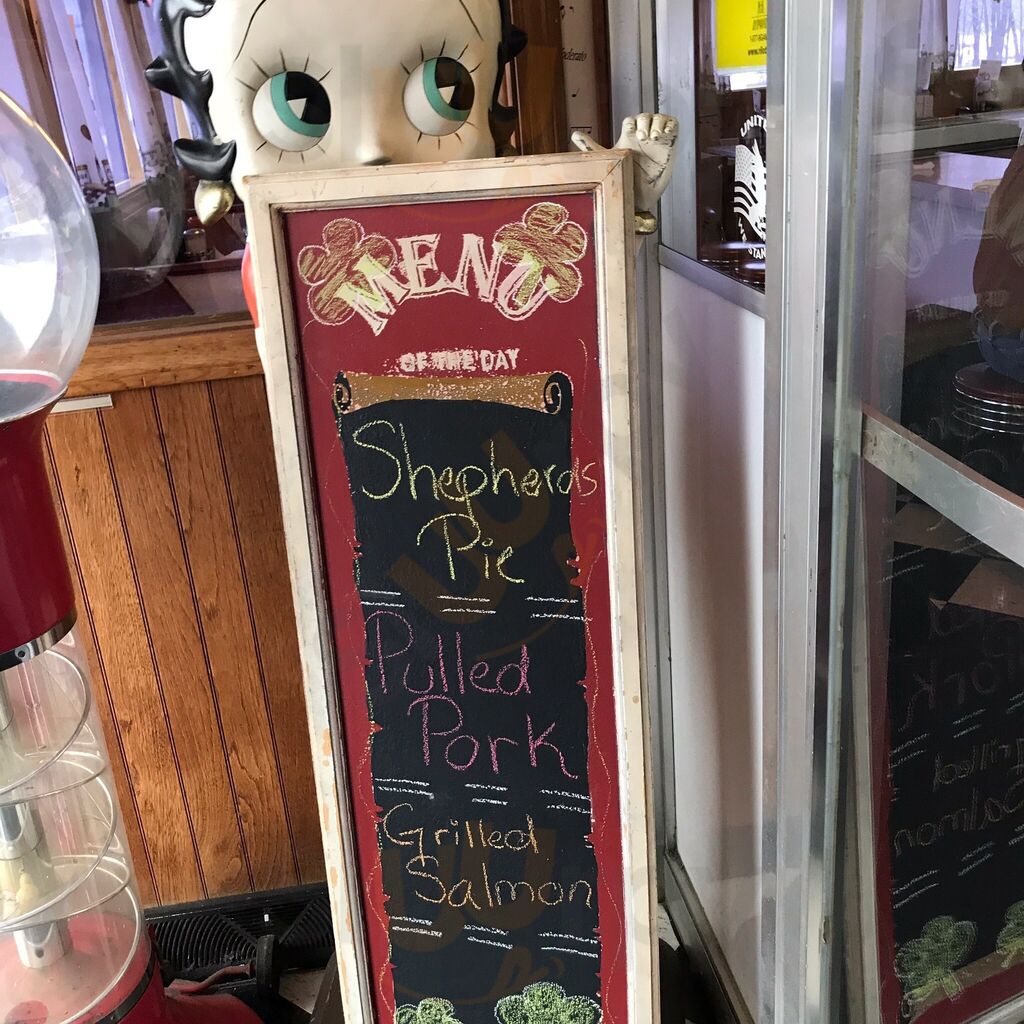 MENU
OF THE DAY
Shepherds
Pie
Pulled
Pork
Grilled
Salmon
UNIT